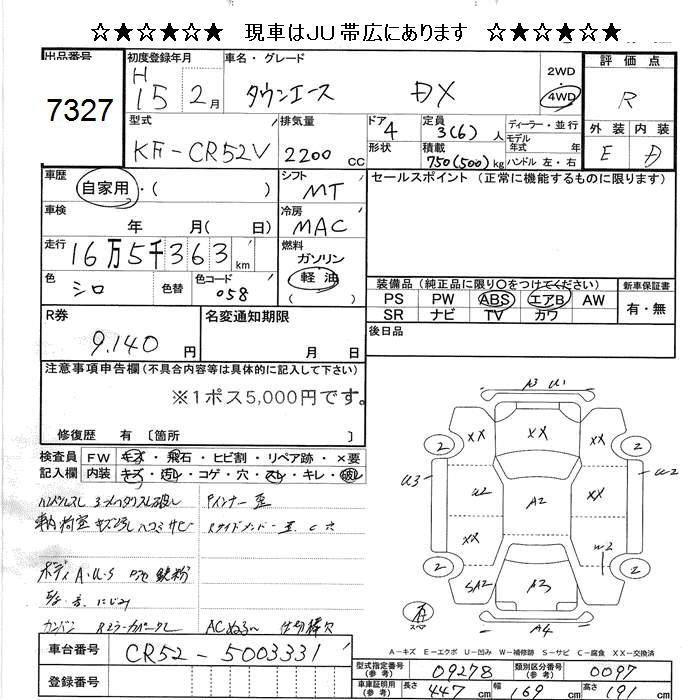 ☆★☆★☆★☆ 現車はJU帯広にあります ☆★☆★☆★☆
出品番号 7327
初度登録年月 H 15 年 2 月
車名・グレード タウンエース DX
2WD 4WD
評価点 R
外装 E 内装 D
型式 KF-CR52V
排気量 2200 cc
ドア 4 形状
定員 3(6) 人
積載 750(500) kg
ディーラー・並行
モデル 年式 年
ハンドル 左・右
車歴 自家用・( )
シフト MT
セールスポイント (正常に機能するものに限ります)
車検 年 月( 日)
冷房 MAC
走行 16万5千363 km
燃料 ガソリン 軽油 ( )
色 シロ 色替 色コード 058
装備品(純正品に限り○をつけてください) 新車保証書
PS PW ABS エアB AW 有・無
SR ナビ TV カワ
R券 9,140 円
名変通知期限 月 日
後日品
注意事項申告欄(不具合等は具体的に記入して下さい)
※1ポス5,000円です。
修復歴 有 〔箇所 〕
検査員記入欄 FW キズ・飛石・ヒビ割・リペア跡・×要
内装 キズ・汚レ・コゲ・穴・スレ・キレ・破レ
ボディA・U・S
A3 U1
XX XX XX
2 2
U3 U2 A2 XX U2
XX W2
2 2
SA2 A3
A4
有 スペア
A-キズ E-エクボ U-凹み W-補修跡 S-サビ C-腐食 XX-交換済
車台番号 CR52-5003331
登録番号
型式指定番号(参考) 09278 類別区分番号(参考) 0097
車庫証明用(参考) 長さ 447 cm 幅 169 cm 高さ 191 cm